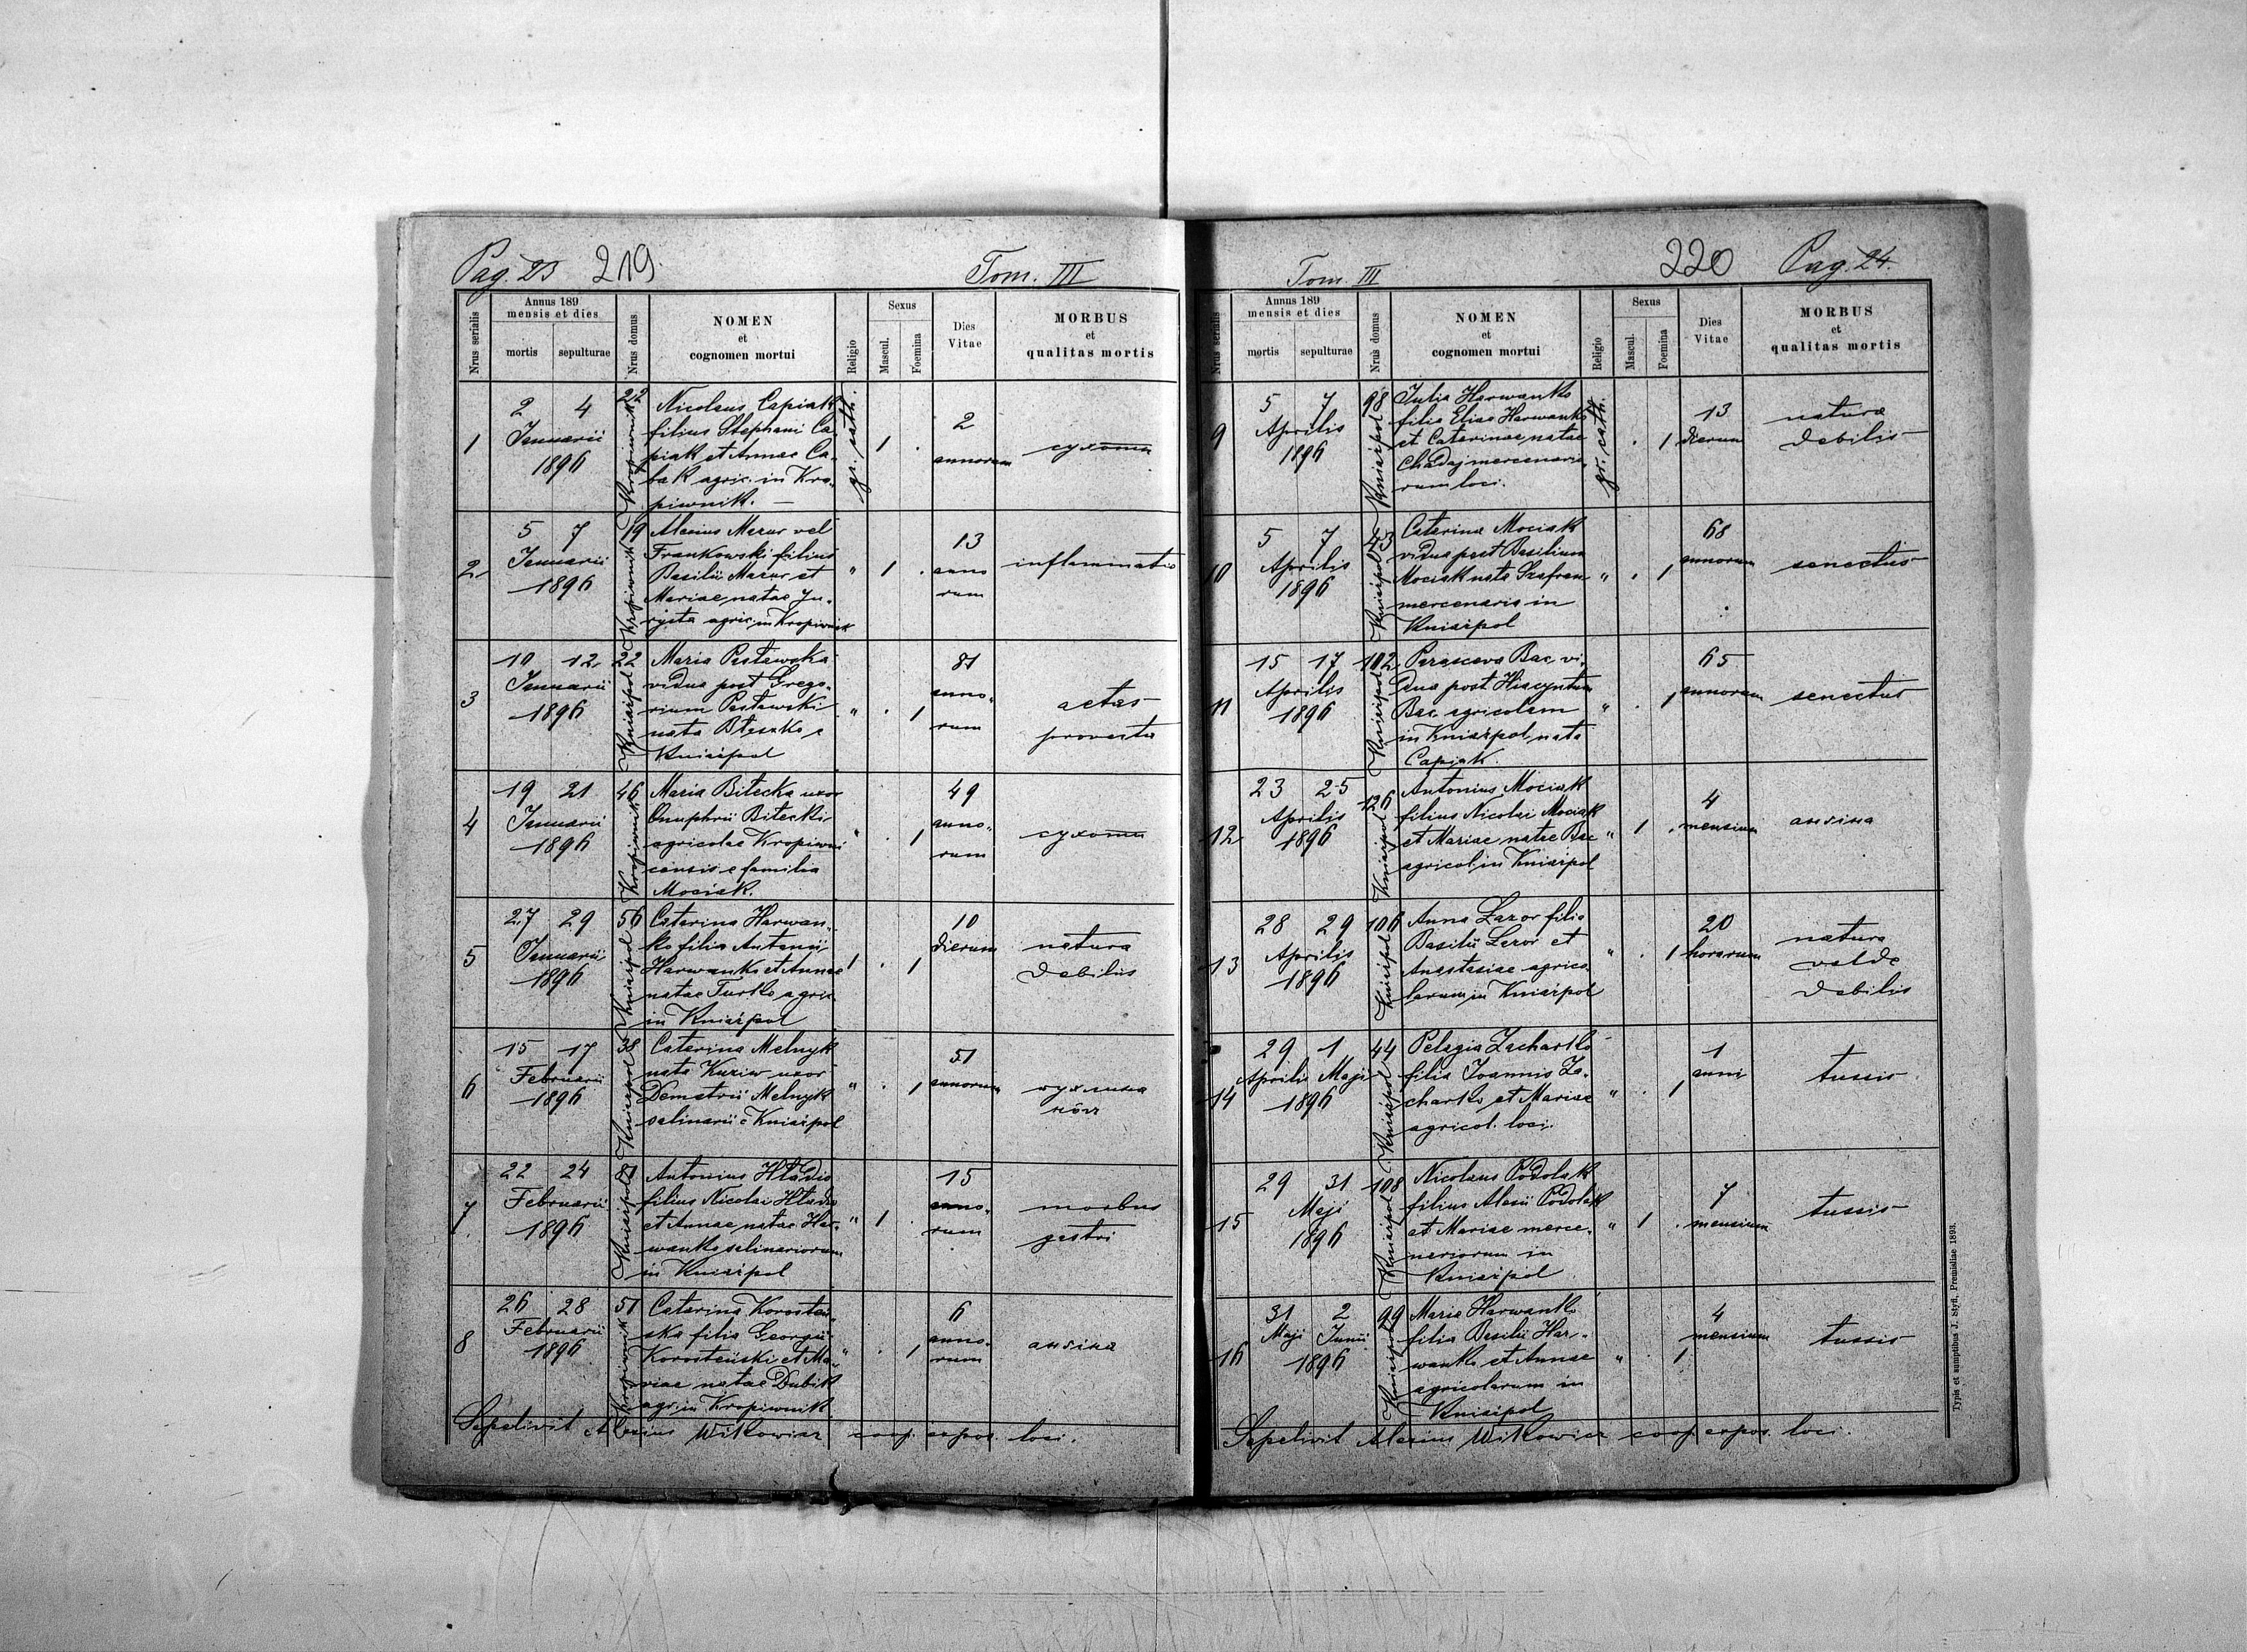 Pag. 23 219. Tom. III
Nrus serialis
Annus 189
mensis et dies
mortis sepulturae
Nrus domus
NOMEN
et
cognomen mortui
Religio
Sexus
Mascul.
Foemina
Dies
Vitae
MORBUS
et
qualitas mortis
1
2 4
Januarii
1896
22
Kropiwnik
Nicolaus Capiak
filius Stephani Ca-
piak et Annae Ca-
bak agric. in Kro-
piwnik. —
gr. cath.
1 .
2
annorum
сухоти
2
5 7
Januarii
1896
19
Kropiwnik
Alexius Mazur vel
Frankowski filius
Basilii Mazur et
Mariae natae Ju-
rysta agric. in Kropiwnik
" 1 .
13
anno
rum
inflammatio
3
10 12
Januarii
1896
22
Kniaźpol
Maria Pastawska
vidua post Grego-
rium Pastawski
nata
Kniaźpol
" . 1
81
anno-
rum
aetas
provecta
4
19 21
Januarii
1896
46
Kropiwnik
Maria Bitecka uxor
Onuphrii Bitecki,
agricolae Kropiwni
censis e familia
Mociak.
" . 1
49
anno-
rum
сухоти
5
27 29
Januarii
1896
56
Kniaźpol
Caterina Harwan-
ko filia Antonii
Harwanko et Annae
natae Turko agric.
in Kniaźpol
. 1
10
dierum
natura
debilis
6
15 17
Februarii
1896
38
Kniaźpol
Caterina Melnyk
nata Kuziw uxor
Demetrii Melnyk
salinarii e Kniaźpol
" . 1
51
annorum
7
22 24
Februarii
1896
81
Kniaźpol
Antonius Hładio
filius Nicolai Hładio
et Annae natae Har-
wanko salinariorum
in Kniaźpol
" 1 .
15
anno-
rum
morbus
gastri
8
26 28
Februarii
1896
51
Kropiwnik
Caterina Korosteń-
ska filia Georgii
Korosteński et Ma-
riae natae Dubik
agr. in Kropiwnik.
" . 1
6
anno-
rum
ангина
Sepelivit Alexius Witkowicz coop. expos. loci.
Tom. III 220 Pag. 24.
Nrus serialis
Annus 189
mensis et dies
mortis sepulturae
Nrus domus
NOMEN
et
cognomen mortui
Religio
Sexus
Mascul.
Foemina
Dies
Vitae
MORBUS
et
qualitas mortis
9
5 7
Aprilis
1896
98
Kniaźpol
Julia Harwanko
filia Eliae Harwanko
et Caterinae natae
Chadaj mercenario-
rum loci.
gr. cath.
. 1
13
dierum
natura
debilis
10
5 7
Aprilis
1896
43
Kniaźpol
Caterina Mociak
vidua post Basilium
Mociak nata Szafran
mercenaria in
Kniaźpol
" . 1
68
annorum
senectus
11
15 17
Aprilis
1896
102
Kniaźpol
Parasceva Bac vi-
dua post Hiacyntum
Bac agricolam
in Kniaźpol, nata
Capiak.
" . 1
65
annorum
senectus
12
23 25
Aprilis
1896
126
Kniaźpol
Antonius Mociak
filius Nicolai Mociak
et Mariae natae Bac
agricol. in Kniaźpol
" 1 .
4
mensium
ангина
13
28 29
Aprilis
1896
106
Kniaźpol
Anna Lazor filia
Basilii Lazor et
Anastasiae agrico-
larum in Kniaźpol
" . 1
20
horarum
natura
valde
debilis
14
29 1
Aprilis Maji
1896
44
Kniaźpol
Pelagia Zacharko
filia Joannis Za-
charko et Mariae
agricol. loci.
" . 1
1
anni
tussis
15
29 31
Maji
1896
108
Kniaźpol
Nicolaus Podolak
filius Alexii Podolak
et Mariae merce-
nariorum in
Kniaźpol
" 1 .
7
mensium
tussis
16
31 2
Maji Junii
1896
99
Kniaźpol
Maria Harwanko
filia Basilii Har-
wanko et Annae
agricolarum in
Kniaźpol
" . 1
4
mensium
tussis
Sepelivit Alexius Witkowicz coop. expos. loci.
Typis et sumptibus J. Styfi, Premisliae 1893.